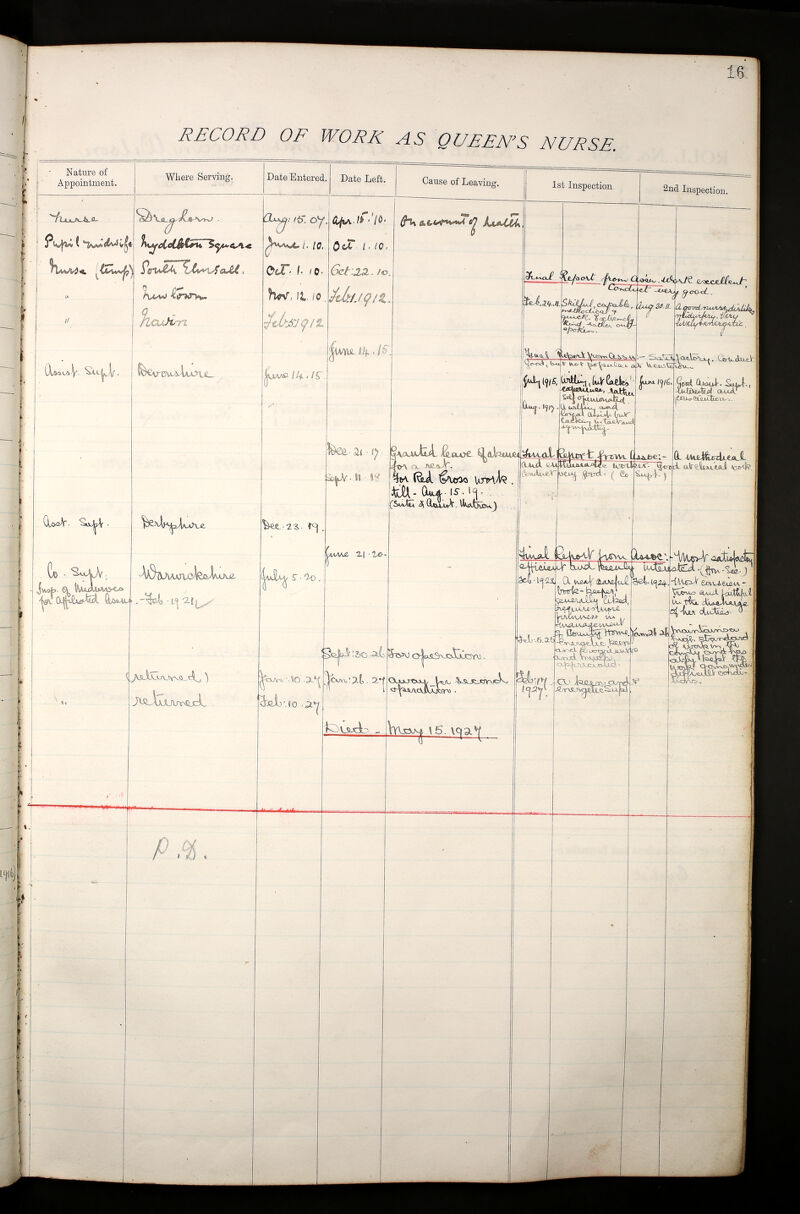 16
RECORD OF WORK AS QUEEN'S NURSE.
Nature of Appointment. Where Serving. Date Entered. Date Left. Cause of Leaving. 1st Inspection. 2nd Inspection.
Nurse Dreghorn. Aug: 15. 07. Apr. 15. '10. On account of health.
Pupil midwife Myddelton Square June 1. 10. Oct 1. 10.
Nurse (temp) South Elmsall. Oct. 1. 10. Oct. 22. 10. Final Report from Assn. Work excellent.
Conduct very good.
" New Town Nov. 12. 10 Feb 5. 1912. Feb. 24. 11. Skilful, capable, methodical & quick. Extremely kind, rather outspoken. Aug 30. 11. A good nurse, dislikes midwifery, very lively & energetic.
" Feb: 5. 1912 June 14. 15.
Final Report from Assn:- Satisfactory. Conduct
good, but not popular as
Assist. Supt. Devonshire June 14. 15. July 1915. Willing, but lacks experience, rather self opinionated June 1916. Good Assist. Supt., interested and conscientious.
Aug. 1917. A willing and loyal Assist. but lacking in tact and sympathy.
Dec. 21. 17 Granted leave of absence for a rest. Final Report from Assoc:- A methodical
and enthusiastic worker. Good at clerical work
Conduct very good. (Co. Supt.)
Sept. 11. 18 For Red Cross work
till - Aug. 15. 19.
(Sister & Assist. Matron)
Asst. Supt. Derbyshire Dec. 23. 19.
June 21. 20. Final Report from Assoc:- Most satisfactory
efficient and keenly interested. (Hon. Sec.)
Co. Supt. Warwickshire July 5. 20. Feb. 1922. A neat careful book-keeper. Generally liked, requires more firmness in management Feb. 1924. Most conscientious and faithful in the discharge of her duties.
Insp. of Midwives
for Affiliated Assns. - Feb. 1921
Feb. 5. 25 Energetic keen Jan. 26 Maintains a high standard of work in the County and has also kept the work going under difficult conditions.
Sept: 30 26 For operation.
(returned) Jan. 10. 27 Jan. 26. 27 Away for second operation. Feb: 17 1927. A keen and energetic Supt.
" returned Feb: 10. 27
Died - May 15. 1927
P.D.